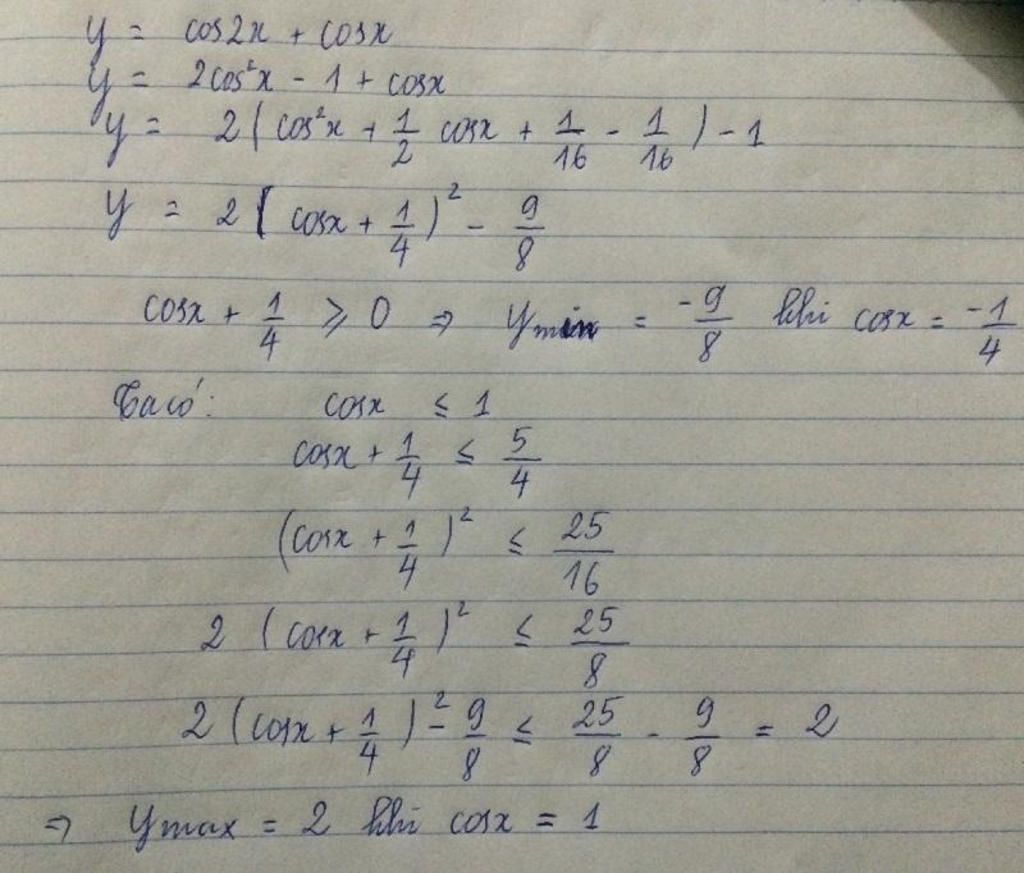 y = cos2x + cosx
y = 2cos²x - 1 + cosx
y = 2(cos²x + 1/2 cosx + 1/16 - 1/16) - 1
y = 2(cosx + 1/4)² - 9/8
cosx + 1/4 ≥ 0 ⇒ ymin = -9/8 khi cosx = -1/4
Ta có: cosx ≤ 1
cosx + 1/4 ≤ 5/4
(cosx + 1/4)² ≤ 25/16
2 (cosx + 1/4)² ≤ 25/8
2 (cosx + 1/4)² - 9/8 ≤ 25/8 - 9/8 = 2
⇒ ymax = 2 khi cosx = 1